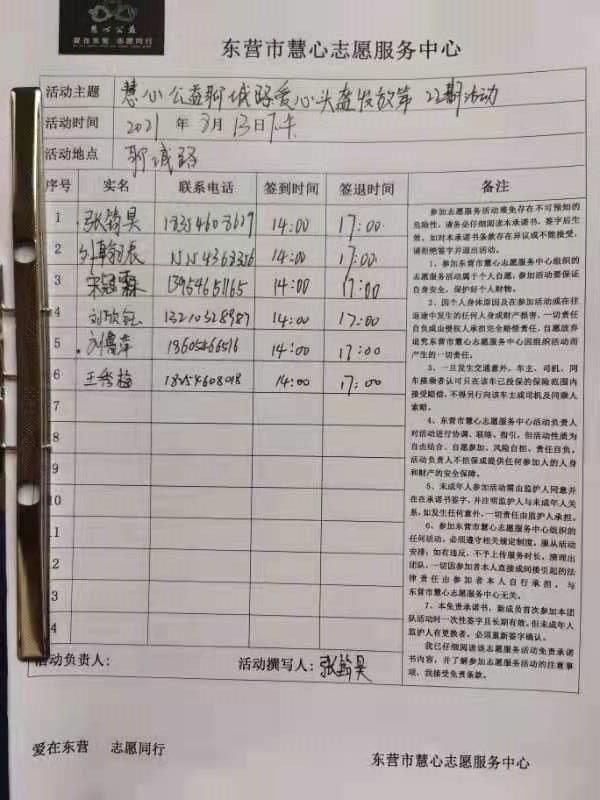 慧心公益
爱在东营 志愿同行
东营市慧心志愿服务中心
活动主题 慧心公益聊城路爱心头盔发放第22期活动
活动时间 2021 年 3月13日下午
活动地点 聊城路
序号 实名 联系电话 签到时间 签退时间 备注
1 张 昊 14:00 17:00
2 14:00 17:00
3 宋冠霖 14:00 17:00
4 刘欣钰 13210328987 14:00 17:00
5 刘鲁萍 13605466516 14:00 17:00
6 王秀梅 18254608018 14:00 17:00
7
8
9
10
11
2
3
4
参加志愿服务活动难免存在不可预知的
危险性，请务必仔细阅读本承诺书，签字后生
效。如对本承诺书条款存在异议或不能接受，
请拒绝签字并退出活动。
1、参加东营市慧心志愿服务中心组织的
志愿服务活动属于个人自愿，参加活动要保证
自身安全，保护好个人财物。
2、因个人身体原因及在参加活动或在往
返途中发生的任何人身或财产损害，一切责任
自负或由侵权人承担完全赔偿责任，自愿放弃
追究东营市慧心志愿服务中心因组织活动而
产生的一切责任。
3、一旦发生交通意外，车主、司机、同
车搭乘者认可只在该车已投保的保险范围内
接受赔偿，不得另行向该车主或司机及同乘人
索赔。
4、东营市慧心志愿服务中心活动负责人
对活动进行协调、联络、指引，但活动性质为
自由结合、自愿参加、风险自担、责任自负。
活动负责人不担保或提供任何参加人的人身
和财产的安全保障。
5、未成年人参加活动需由监护人同意并
在在承诺书签字，并注明监护人与未成年人关
系，如发生任何意外，一切责任由监护人承担。
6、参加东营市慧心志愿服务中心组织的
任何活动，必须遵守相关规定制度，服从活动
安排；如有违反，不予上传服务时长，清理出
团队。一切因参加者本人直接或间接引起的法
律责任由参加者本人自行承担，与
东营市慧心志愿服务中心无关。
7、本免责承诺书，新成员首次参加本团
队活动时一次性签字且长期有效，但未成年人
监护人有更换者，必须重新签字确认。
我已仔细阅读该志愿服务活动免责承诺
书内容，并了解参加志愿服务活动的注意事
项，我接受免责条款。
活动负责人： 活动撰写人：张 昊
爱在东营 志愿同行 东营市慧心志愿服务中心